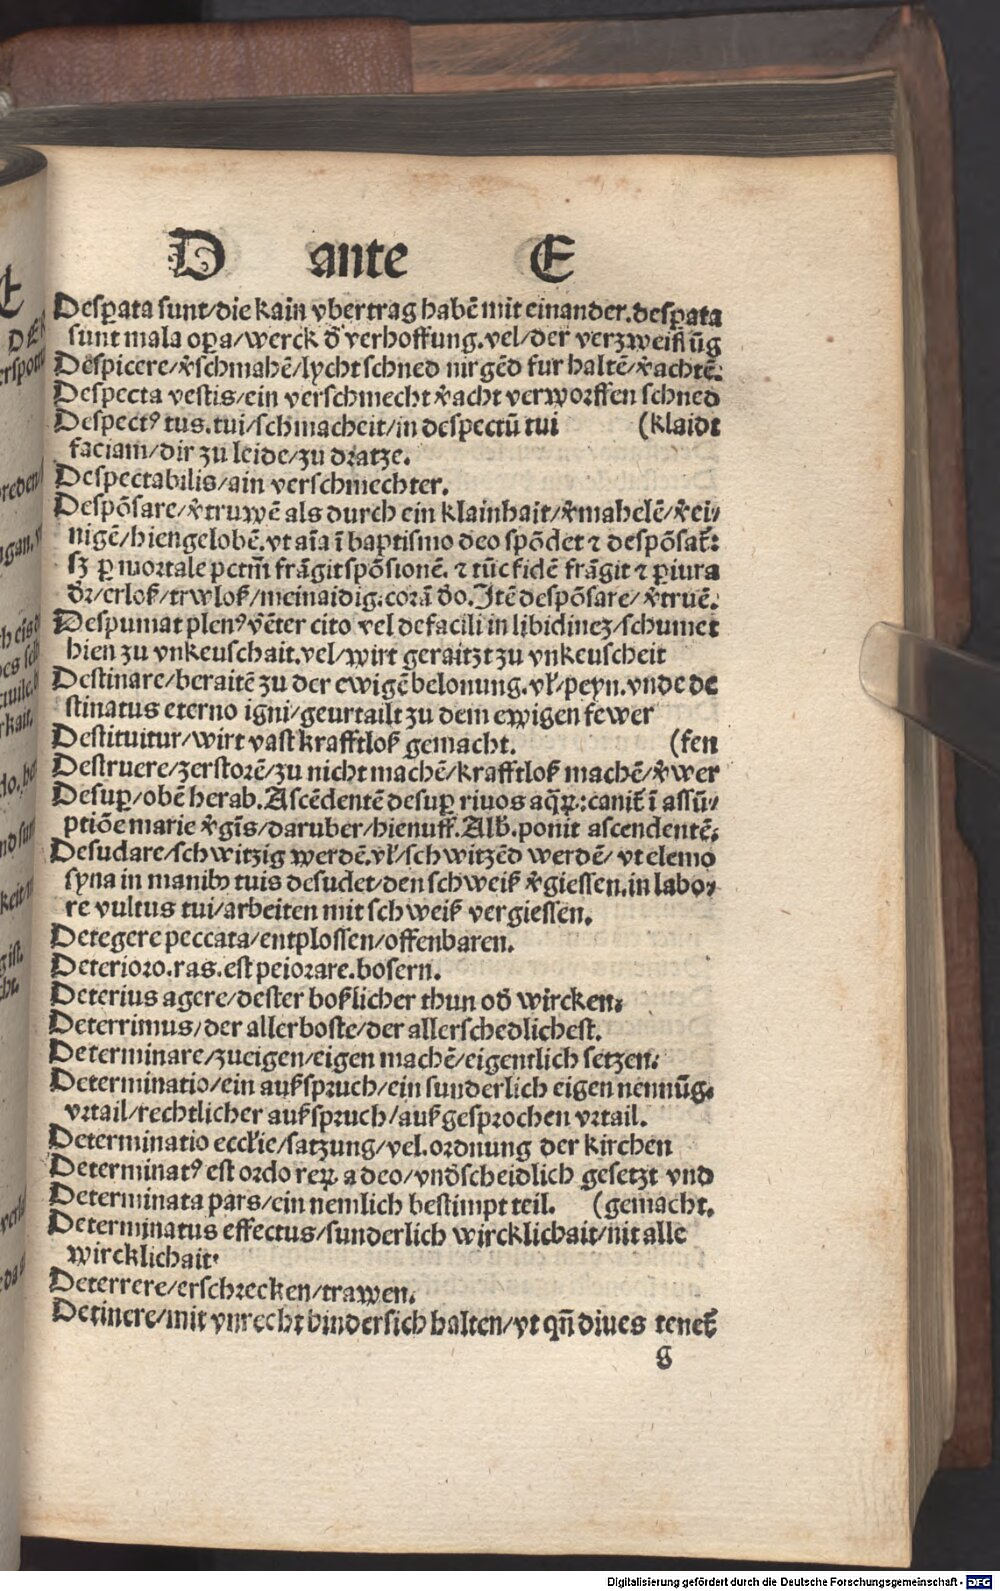 D ante E
Desꝑata sunt/die kain vbertrag habē mit einander.desꝑata
sunt mala oꝑa/werck ď verhoffung.vel/der verzweiflūg
Despicere/v̄schmahē/lycht schned nirgēd fur haltē/v̄achtē.
Despecta vestis/ein verschmecht v̄acht verworffen schned
Despectꝰ tus.tui/schmacheit/in despectū tui (klaidt
faciam/dir zu leide/zu dratze.
Despectabilis/ain verschmechter.
Despōsare/v̄truwē als durch ein klainhait/v̄mahelē/v̄ei/
nigē/hiengelobē.vt aīa ī baptismo deo spōdet ⁊ despōsat̄:
sꝫ ꝑ mortale pctm̄ frāgit spōsionē. ⁊ tūc fidē frāgit ⁊ ꝑiura
ďr/erloß/trwloß/meinaidig.corā ďo.Itē despōsare/v̄truē.
Despumat plenꝰ vēter cito vel defacili in libidinez/schumet
hien zu vnkeuschait.vel/wirt geraitzt zu vnkeuscheit
Destinare/beraitē zu der ewigē belonung.vł/peyn.vnde de
stinatus eterno igni/geurtailt zu dem ewigen fewer
Destituitur/wirt vast krafftloß gemacht. (fen
Destruere/zerstorē/zu nicht machē/krafftloß machē/v̄wer
Desuꝑ/obē herab.Ascēdentē desuꝑ riuos aq̄ꝝ:canit̄ ī assū/
ptiōe marie v̄gīs/daruber/hienuff.Alb̄.ponit ascendentē.
Desudare/schwitzig werdē.vł/schwitzēd werdē/ vt elemo
syna in manibꝰ tuis desudet/den schweiß v̄giessen.in labo/
re vultus tui/arbeiten mit schweiß vergiessen.
Detegere peccata/entplossen/offenbaren.
Deterioro.ras.est peiorare.bosern.
Deterius agere/dester boßlicher thun oď wircken.
Deterrimus/der allerboste/der allerschedlichest.
Determinare/zueigen/eigen machē/eigentlich setzen.
Determinatio/ein außspruch/ein sunderlich eigen nennūg.
vrtail/rechtlicher außspruch/außgesprochen vrtail.
Determinatio eccłie/satzung/vel.ordnung der kirchen
Determinatꝰ est ordo reꝝ a deo/vnďscheidlich gesetzt vnd
Determinata pars/ein nemlich bestimpt teil. (gemacht.
Determinatus effectus/sunderlich wircklichait/nit alle
wircklichait.
Deterrere/erschrecken/trawen.
Detinere/mit vnrecht hindersich halten/vt qn̄ diues tenet̄
g
Digitalisierung gefördert durch die Deutsche Forschungsgemeinschaft - DFG